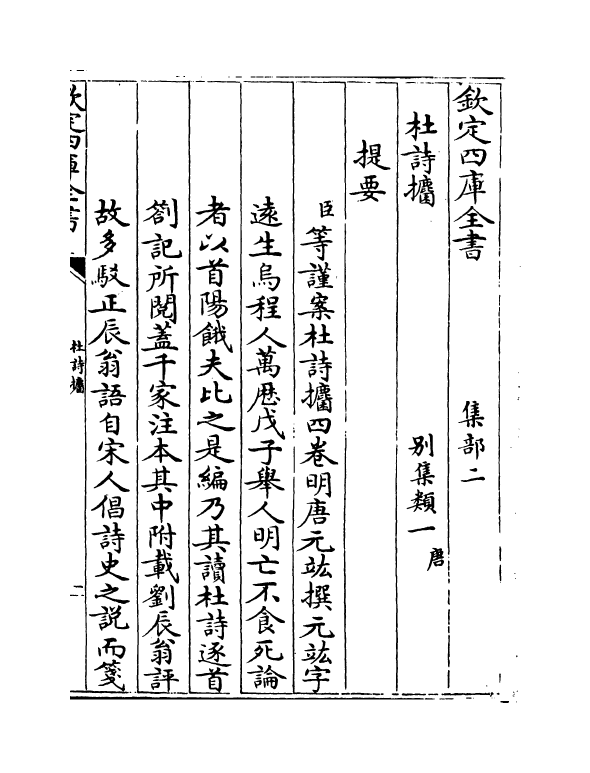 欽定四庫全書
集部二
杜詩攟
别集類一
唐
提要
臣等謹案杜詩攟四卷明唐元竑撰元竑字
遠生烏程人萬厯戊子舉人明亡不食死論
者以首陽餓夫比之是編乃其讀杜詩逐首
劄記所閲蓋千家注本其中附載劉辰翁評
故多駁正辰翁語自宋人倡詩史之説而箋
欽定四庫全書
杜詩攟